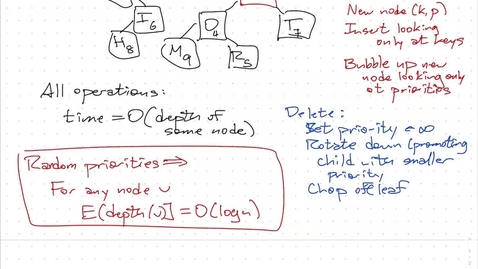 I6
H8
M9
O4
R5
T7
New node (k,p)
Insert looking
only at keys
Bubble up new
node looking only
at priorities
All operations:
time = O(depth of
some node)
Random priorities ⟹
For any node v
E[depth(v)] = O(log n)
Delete:
Set priority ← ∞
Rotate down (promoting
child with smaller
priority
Chop off leaf